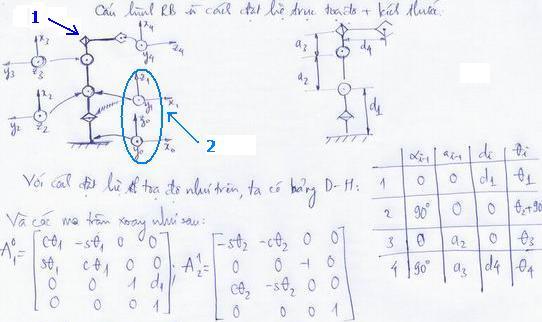 Cấu hình RB và cách đặt hệ trục toạ độ + kích thước.
1
x3
y3
z3
x4
z4
y4
a3
d4
a2
d1
x2
y2
z2
z1
x1
y1
z0
x0
y0
2
Với cách đặt hệ toạ độ như trên, ta có bảng D-H:
αi-1 ai-1 di θi
1 0 0 d1 θ1
2 90° 0 0 θ2+90
3 0 a2 0 θ3
4 90° a3 d4 θ4
Và các ma trận xoay như sau:
A⁰₁ = [cθ1 -sθ1 0 0
sθ1 cθ1 0 0
0 0 1 d1
0 0 0 1] ;
A¹₂ = [-sθ2 -cθ2 0 0
0 0 -1 0
cθ2 -sθ2 0 0
0 0 0 1]